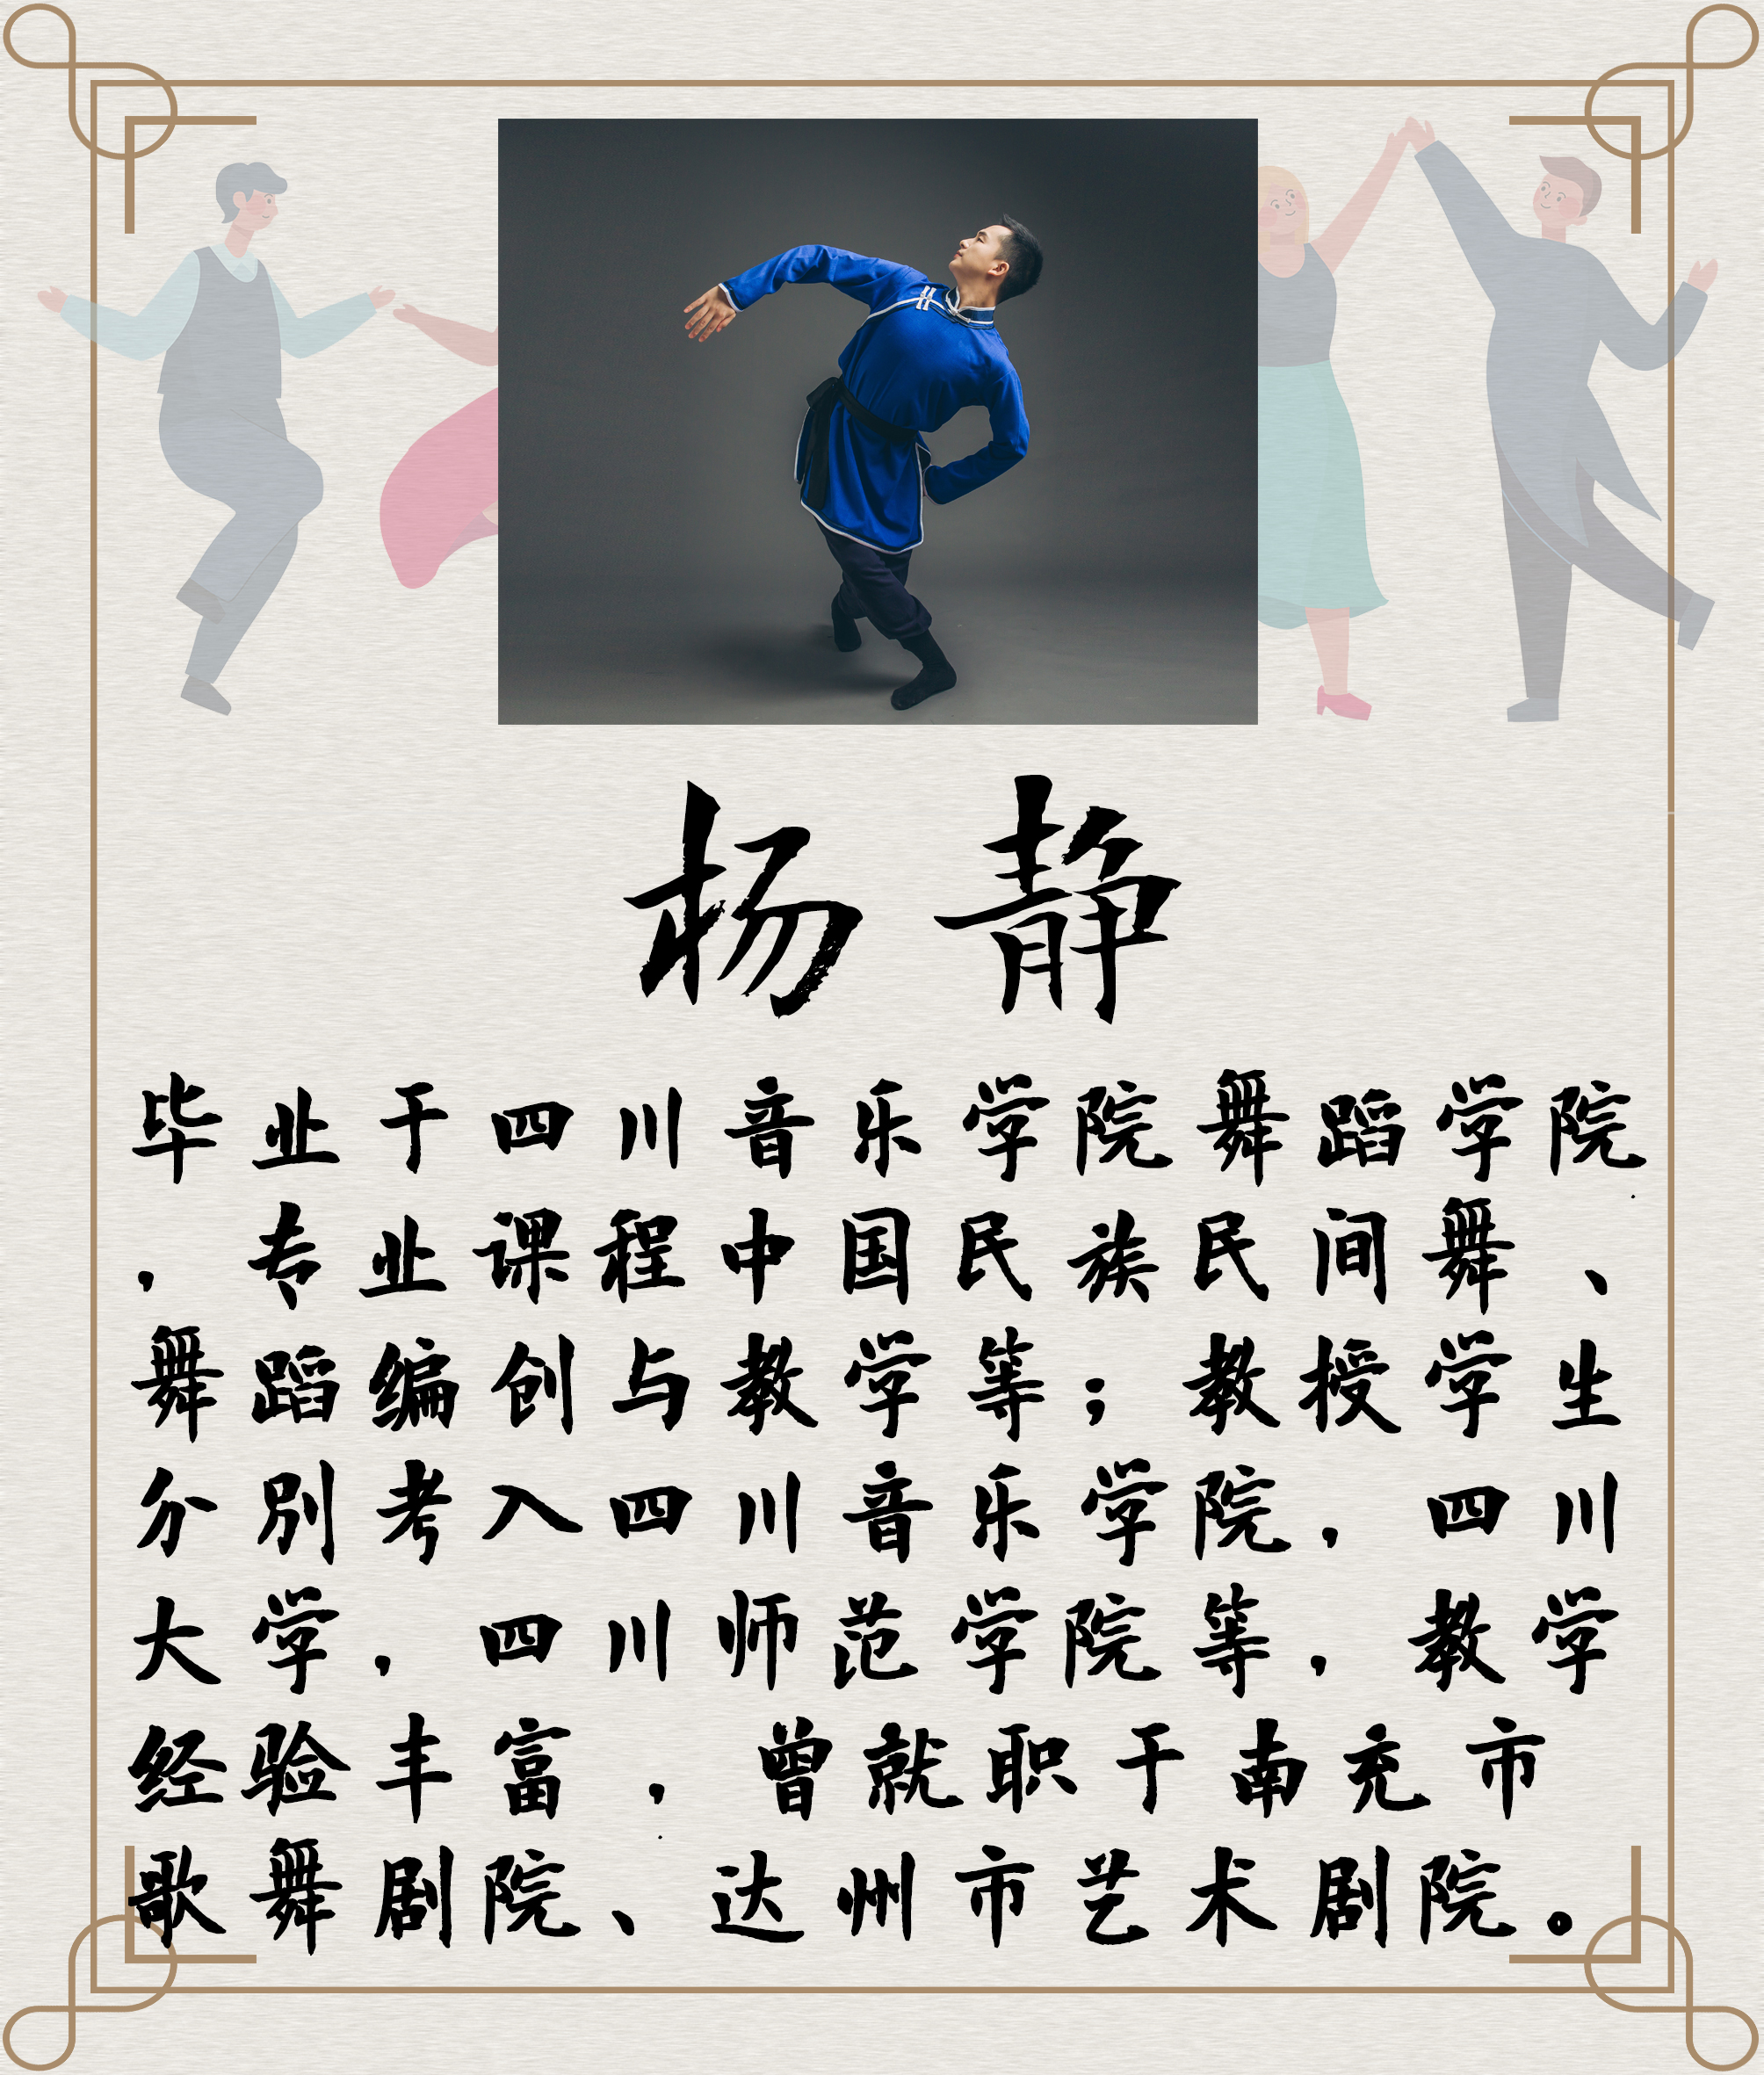 杨静
毕业于四川音乐学院舞蹈学院
，专业课程中国民族民间舞、
舞蹈编创与教学等；教授学生
分别考入四川音乐学院，四川
大学，四川师范学院等，教学
经验丰富，曾就职于南充市
歌舞剧院、达州市艺术剧院。